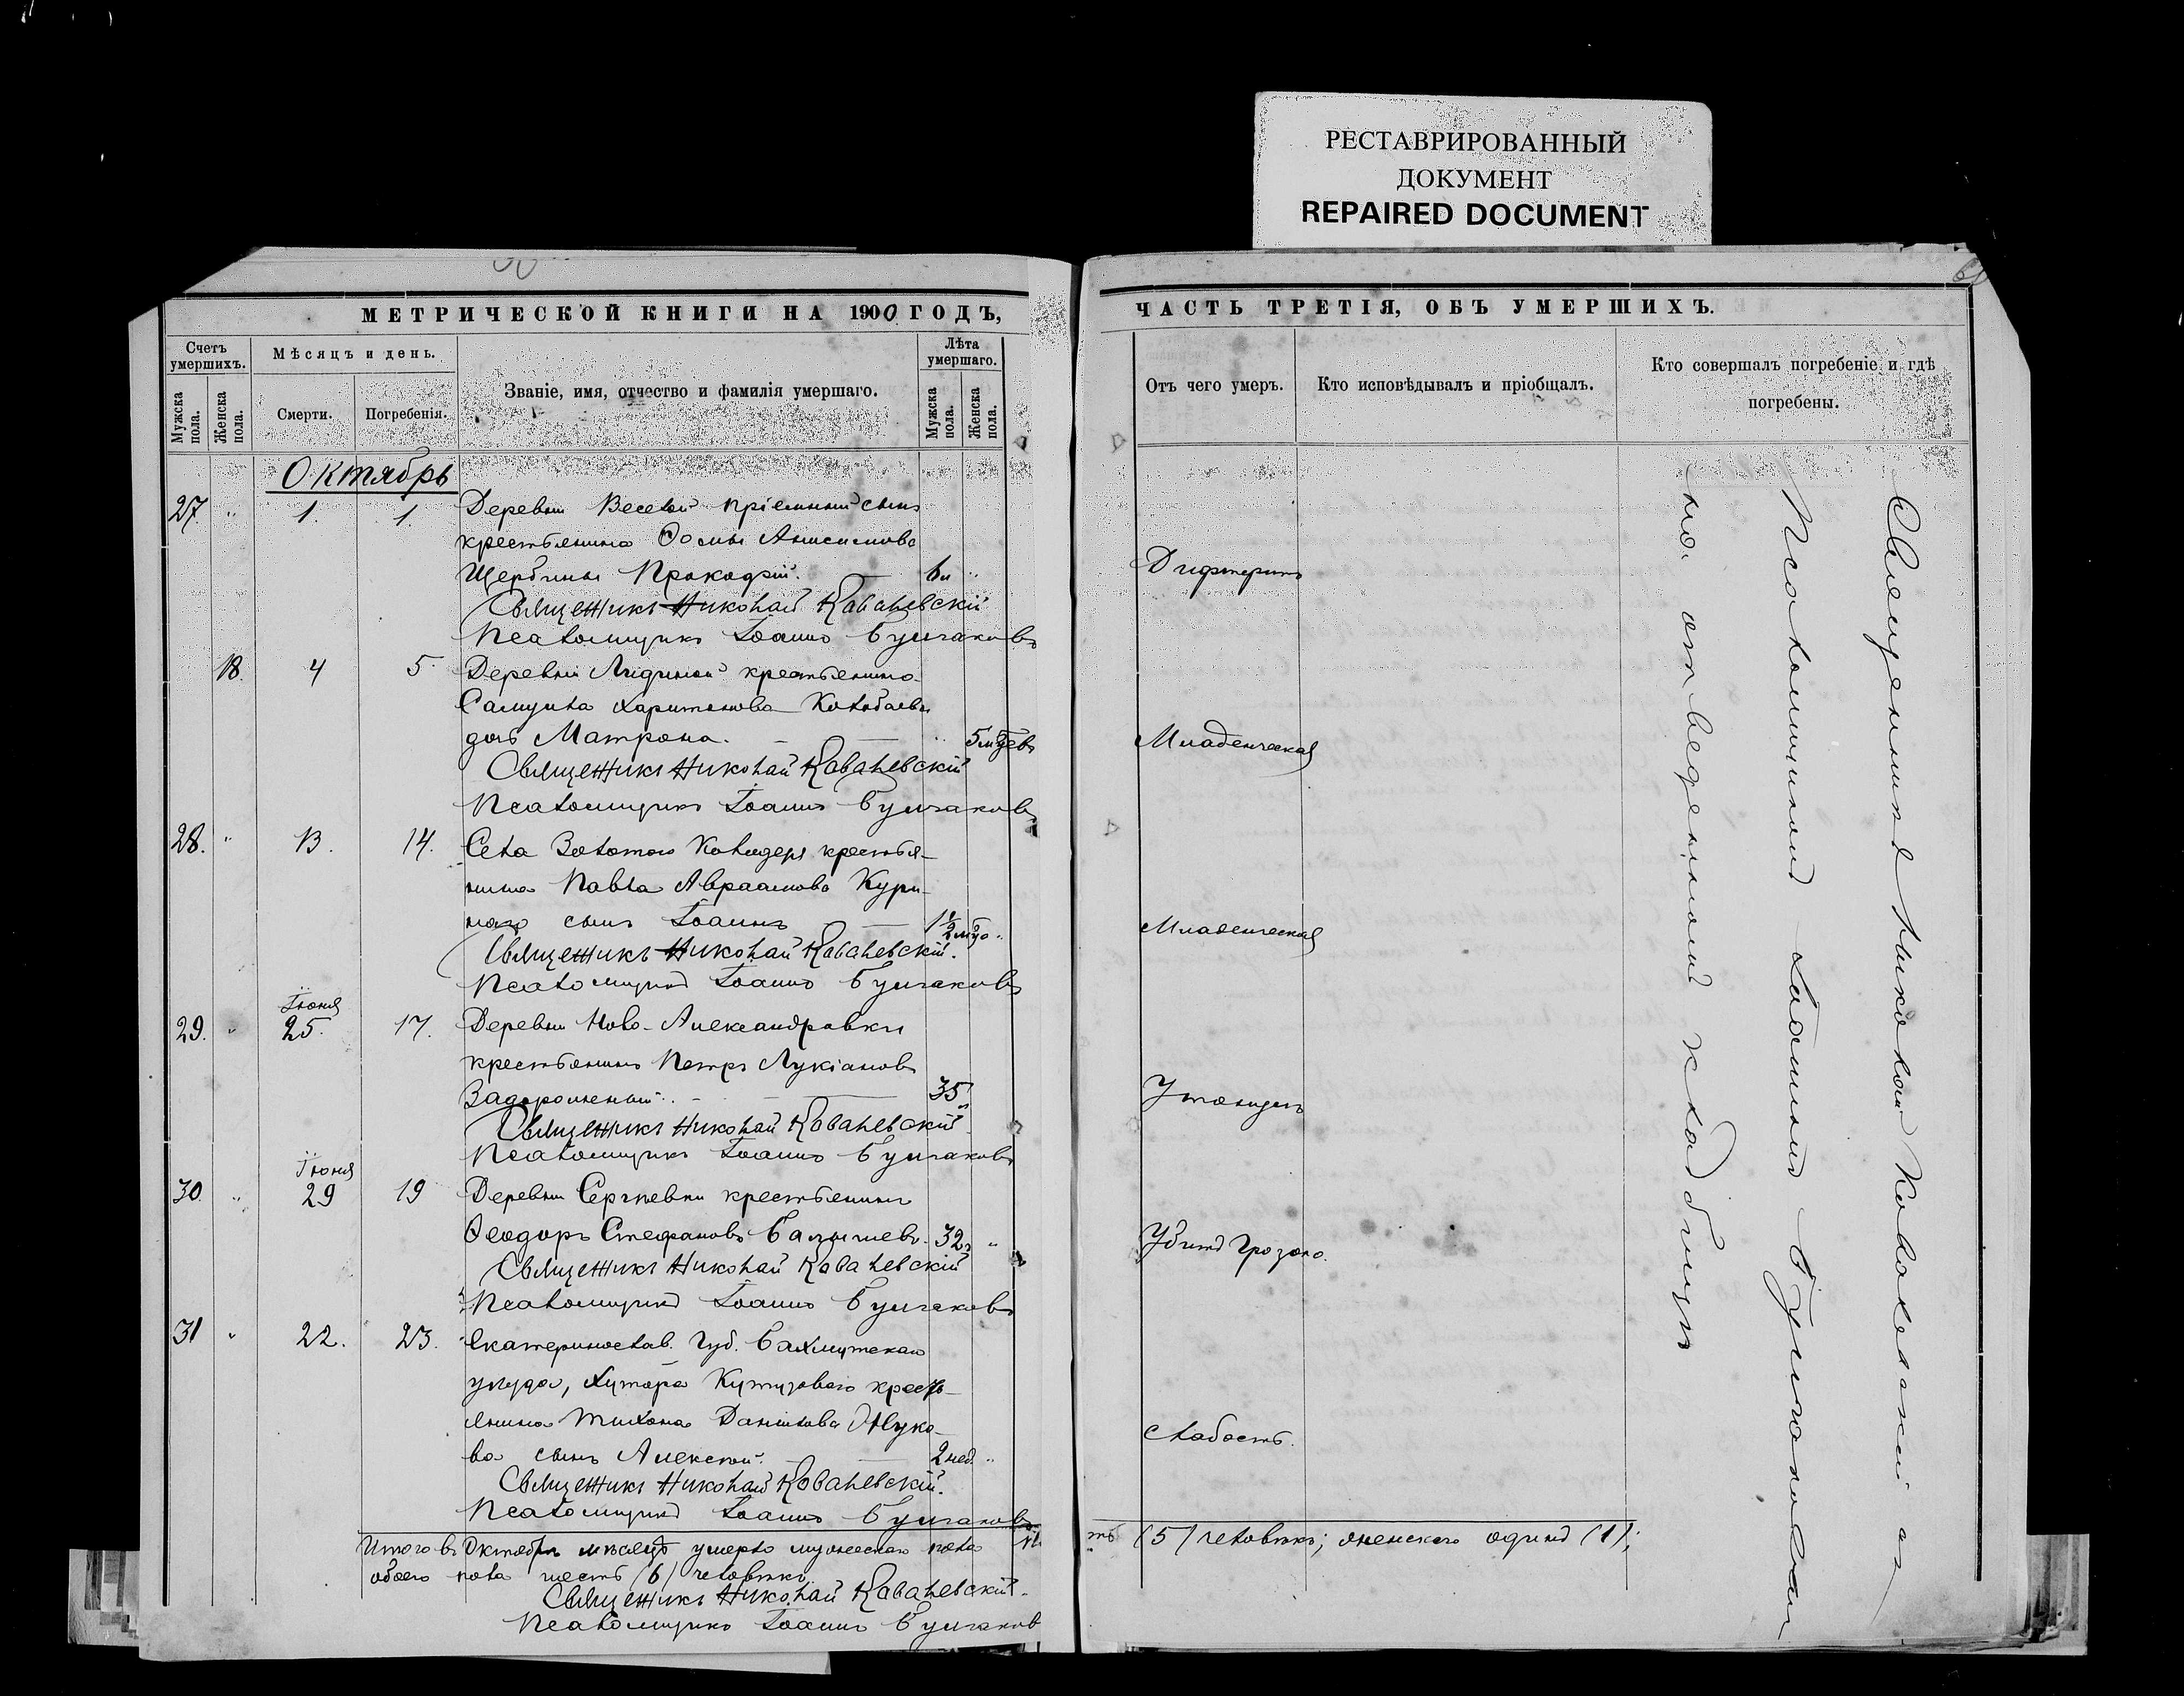 РЕСТАВРИРОВАННЫЙ
ДОКУМЕНТ
REPAIRED DOCUMENT
МЕТРИЧЕСКОЙ КНИГИ НА 1900 ГОДЪ,
Счетъ умершихъ.
Мужска пола.
Женска пола.
Мѣсяцъ и день.
Смерти.
Погребенія.
Званіе, имя, отчество и фамилія умершаго.
Лѣта умершаго.
Мужска пола.
Женска пола.
Октябрь
27 " 1. 1. Деревни Веселой пріемный сынъ
крестьянина Ѳомы Анисимова
Щербины Прокофій. — 6 "
Священникъ Николай Ковалевскій
Псаломщикъ Іоаннъ Булгаковъ
18. 4 5 Деревни Лидиной крестьянина
Самуила Харитонова
дочь Матрона. — 5
Священникъ Николай Ковалевскій
Псаломщикъ Іоаннъ Булгаковъ
28. " 13. 14. Села Золотого Колодезя крестья-
нина Павла Авраамова Кури-
наго сынъ Іоаннъ — 1½
Священникъ Николай Ковалевскій.
Псаломщикъ Іоаннъ Булгаковъ
Іюня
29. " 25. 17. Деревни Ново-Александровки
крестьянинъ Петръ Лукіановъ
Задорожный. — 35
Священникъ Николай Ковалевскій
Псаломщикъ Іоаннъ Булгаковъ
Іюня
30. " 29 19 Деревни Сергѣевки крестьянинъ
Ѳеодоръ Стефановъ 32 "
Священникъ Николай Ковалевскій
Псаломщикъ Іоаннъ Булгаковъ
31 " 22. 23. Екатеринослав. Губ. Бахмутскаго
уѣзда, Хутора Кутузоваго кресть-
янина Тихона Данилова Жуко-
ва сынъ Алексѣй. — 2 нед. "
Священникъ Николай Ковалевскій.
Псаломщикъ Іоаннъ Булгаковъ
Итого въ Октябрѣ мѣсяцѣ умерло мужескаго пола
обоего пола шесть (6) человѣкъ.
Священникъ Николай Ковалевскій.
Псаломщикъ Іоаннъ Булгаковъ
ЧАСТЬ ТРЕТІЯ, ОБЪ УМЕРШИХЪ.
Отъ чего умеръ.
Кто исповѣдывалъ и пріобщалъ.
Кто совершалъ погребеніе и гдѣ погребены.
Дифтеритъ
Младенческая
Младенческая
Утонулъ
Убитъ Грозою.
Слабость.
Священникъ Николай Ковалевскій съ
Псаломщикомъ Іоанномъ Булгаковымъ
на отведенномъ кладбищѣ
ть (5) человѣкъ; женскаго одинъ (1);